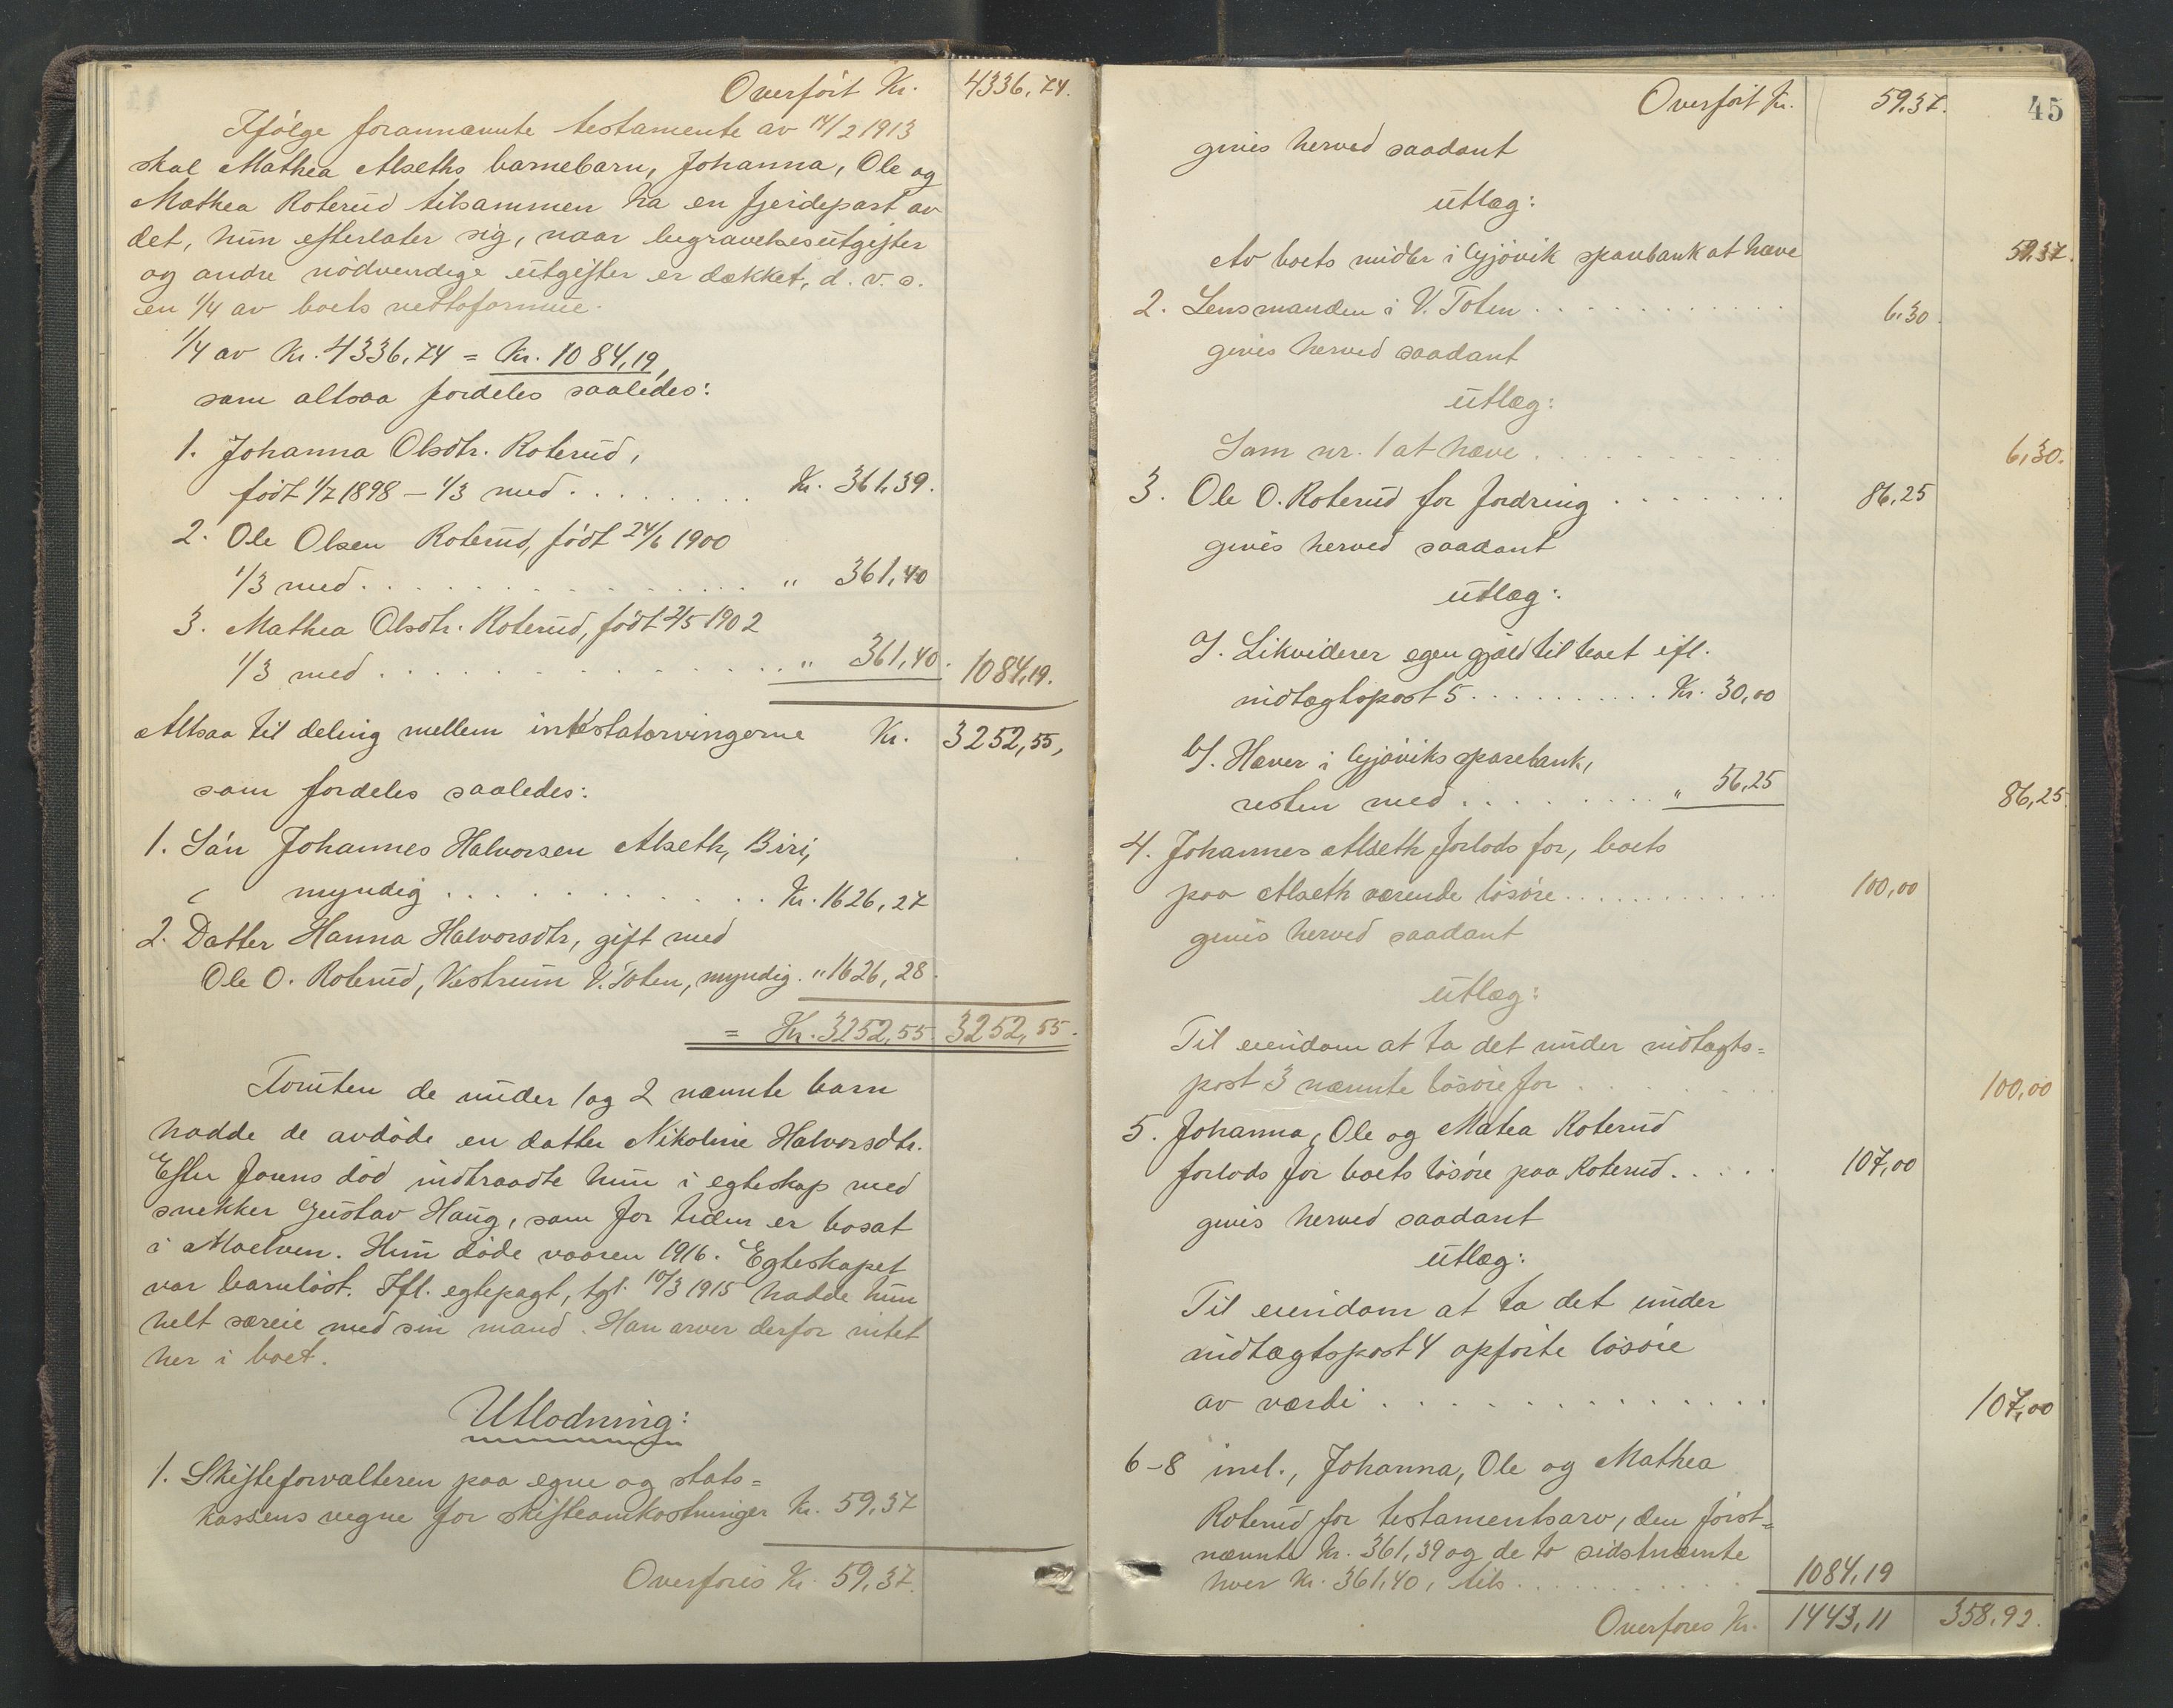 Overført Kr. 4336,74.
Ifølge forannævnte testamente av 14/2 1913
skal Mathea Alseths barnebarn, Johanna, Ole og
Mathea Roterud tilsammen ha en fjerdepart av
det, hun efterlater sig, naar begravelsesutgifter
og andre nödvendige utgifter er dækket, d. v. s.
en 1/4 av boets nettoformue.
1/4 av Kr. 4336,74 = Kr. 1084,19,
som altsaa fordeles saaledes:
1. Johanna Olsdtr. Roterud,
født 1/7 1898 – 1/3 med . . . . . . . Kr. 361,39.
2. Ole Olsen Roterud, født 24/6 1900
1/3 med . . . . . . . . . . . . " 361,40
3. Mathea Olsdtr. Roterud, født 2/5 1902
1/3 med . . . . . . . . . . . . " 361,40. 1084,19.
Altsaa til deling mellem intestatarvingerne Kr. 3252,55,
som fordeles saaledes:
1. Sön Johannes Halvorsen Alseth, Biri,
myndig . . . . . . . . . . Kr. 1626,27
2. Datter Hanna Halvorsdtr, gift med
Ole O. Roterud, Vestrum V. Toten, myndig. " 1626,28.
= Kr. 3252,55 3252,55.
Foruten de under 1 og 2 nævnte barn
hadde de avdøde en datter Nikoline Halvorsdtr.
Efter faren's død indtraadte hun i egteskap med
snekker Gustav Haug, som for tiden er bosat
i Moelven. Hun døde vaaren 1916. Egteskapet
var barnløst. Ifl. egtepagt, tgl. 10/3 1915 hadde hun
helt særeie med sin mand. Han arver derfor intet
her i boet.
Utlodning:
1. Skifteforvalteren paa egne og stats=
kassens vegne for skifteomkostninger Kr. 59,37
Overføres Kr. 59,37.
45
Overført Kr. 59,37.
gives herved saadant
utlæg:
Av boets midler i Gjøvik sparebank at hæve 59,37.
2. Lensmanden i V. Toten . . . . . . . . . 6,30.
gives herved saadant
utlæg:
Som nr. 1 at hæve . . . . . . . . . 6,30.
3. Ole O. Roterud for fordring . . . . . . 86,25
gives herved saadant
utlæg:
a/. Likviderer egen gjæld til boet ifl.
indtægtspost 5 . . . . . . . . . Kr. 30,00
b/. Hæver i Gjøviks sparebank,
resten med . . . . . . . . " 56,25 86,25
4. Johannes Alseth forlods for, boets
paa Alseth værende løsøre . . . . . . . . . 100,00
gives herved saadant
utlæg:
Til eiendom at ta det under indtægts=
post 3 nævnte løsøre for . . . . . . . 100,00
5. Johanna, Ole og Matea Roterud
forlods for boets løsøre paa Roterud . . . . . 107,00
gives herved saadant
utlæg:
Til eiendom at ta det under
indtægtspost 4 opførte løsøre
av værdi . . . . . . . . . . . . 107,00
6–8 incl., Johanna, Ole og Mathea
Roterud for testamentsarv, den først=
nævnte Kr. 361,39 og de to sidstnævnte
hver Kr. 361,40, tils. . . . . . . . . . 1084,19
Overføres Kr. 1443,11 358,92.